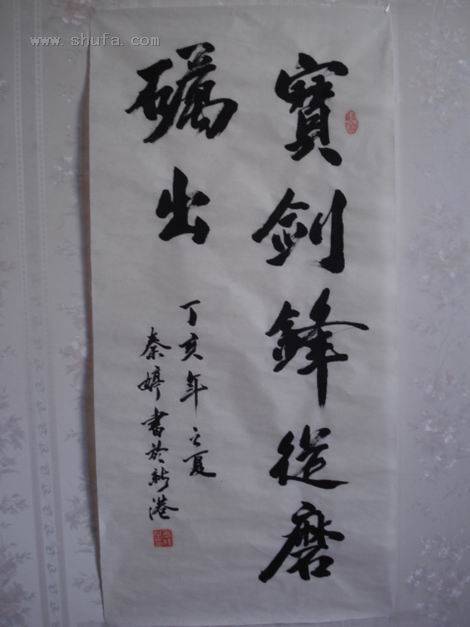 寶劍鋒從磨
礪出
丁亥年之夏
秦婷書於新港
www.shufa.com